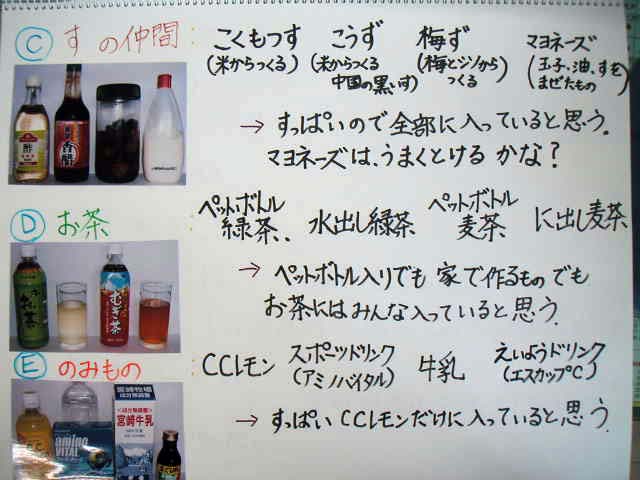 C すの仲間
こくもつす こうず 梅ず マヨネーズ
(米からつくる) (米からつくる (梅とジソから (玉子、油、すを
中国の黒いす) つくる) まぜたもの)
→ すっぱいので全部に入っていると思う。
マヨネーズは、うまくとける かな?
酢 香酢
D お茶
ペットボトル ペットボトル
緑茶、 水出し緑茶 麦茶 に出し麦茶
→ ペットボトル入りでも 家で作るもの でも
お茶にはみんな入っていると思う。
お茶 むぎ茶
E のみもの
CCレモン スポーツドリンク 牛乳 えいようドリンク
(アミノバイタル) (エスカップC)
→ すっぱい CCレモンだけに入っていると思う。
amino
VITAL
宮崎牧場
宮崎牛乳